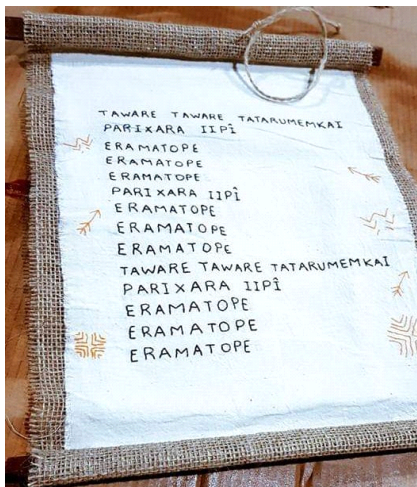 TAWARE TAWARE TATARUMEMKAI
PARIXARA IIPÎ
ERAMATOPE
ERAMATOPE
ERAMATOPE
PARIXARA IIPÎ
ERAMATOPE
ERAMATOPE
ERAMATOPE
TAWARE TAWARE TATARUMEMKAI
PARIXARA IIPÎ
ERAMATOPE
ERAMATOPE
ERAMATOPE